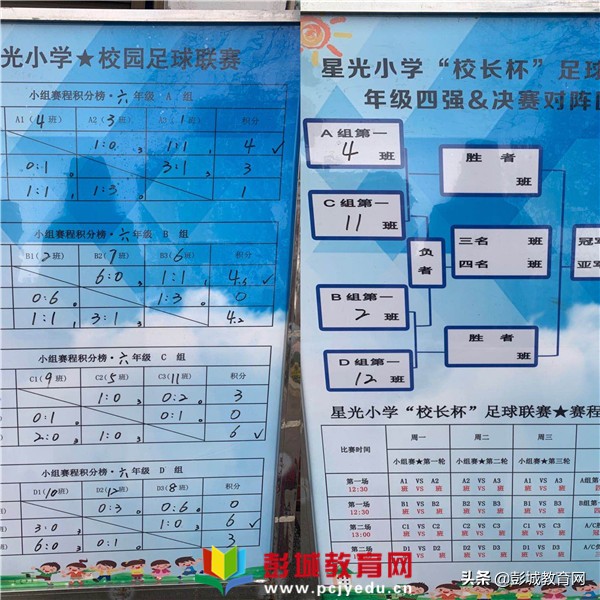 光小学★校园足球联赛
小组赛程积分榜·六年级 A 组
A1(4班) A2(3班) 积分
1:0 3 1:1 1 4 ✓
0:1 0 3:1 3 3
1:1 1 1:3 0 1
小组赛程积分榜·六年级 B 组
B1(2班) B2(7班) B3(6班) 积分
6:0 3 1:1 1 4.5 ✓
0:6 0 1:3 0 0
1:1 1 3:1 3 4.2
小组赛程积分榜·六年级 C 组
C1(9班) C2(5班) C3(11班) 积分
1:0 3 0:2 0 3
0:1 0 0:1 0 0
2:0 3 1:0 3 6 ✓
小组赛程积分榜·六年级 D 组
D1(10班) D2(12班) D3(8班) 积分
0:3 0 0:6 0 0
3:0 3 1:0 3 6 ✓
6:0 3 0:1 3
星光小学“校长杯”足球
年级四强&决赛对阵
A组第一
4班
C组第一
11班
B组第一
2班
D组第一
12班
胜者
班
负者
三名 班
四名 班
冠军
亚军
胜者
班
星光小学“校长杯”足球联赛★赛程
比赛时间 周一 周二 周三
小组赛★第一轮 小组赛★第二轮 小组赛★第三轮
第一场 12:30 A1 VS A2 A2 VS A3 A1 VS A3 A组第一
班 VS 班 班 VS 班 班 VS 班
第一场 12:30 B1 VS B2 B2 VS B3 B1 VS B3 B组第一
班 VS 班 班 VS 班 班 VS 班
第二场 13:00 C1 VS C2 C2 VS C3 C1 VS C3
班 VS 班 班 VS 班 班 VS 班
第二场 D1 VS D2 D2 VS D3 D1 VS D3
彭城教育网
www.pcjyedu.cn
头条 @彭城教育网